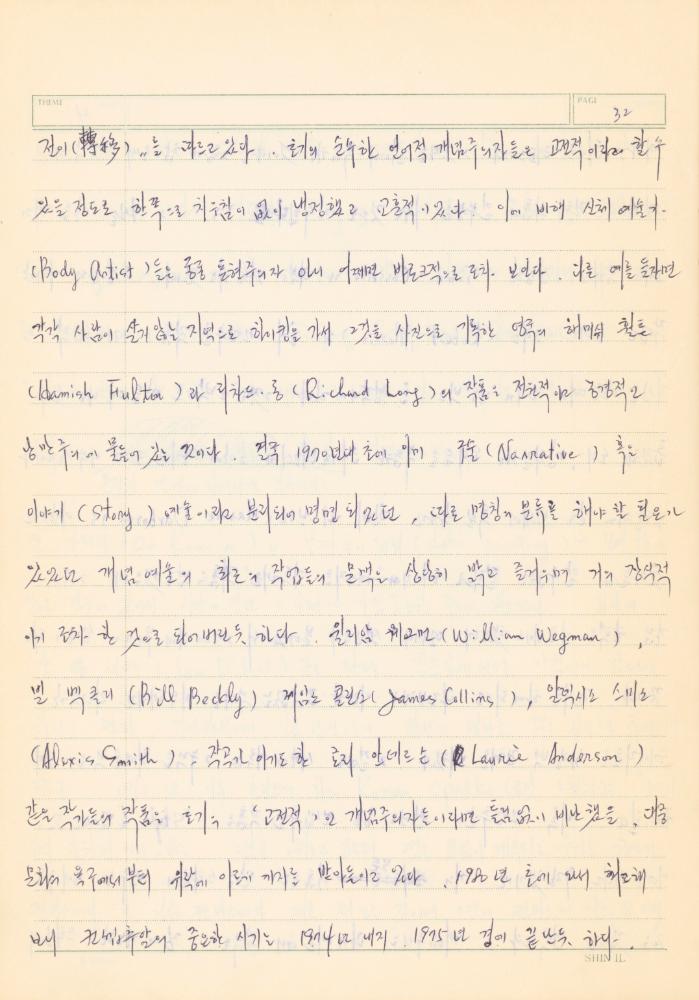 THEME
PAGE
32
전이(轉移)„를 따르고 있다. 초기의 순수한 언어적 개념주의자들은 고전적이라고 할 수
있을 정도로 한쪽으로 치우침이 없이 냉정했고 고흔적이었다. 이에 비해 신체 예술가
(Body Artist)들은 종종 표현주의자 아니 어쩌면 바로크적으로조차 보인다. 다른 예를 들자면
각각 사람이 살지않는 지역으로 하이킹을 가서 그것을 사진으로 기록한 영국의 해미쉬 훌톤
(Hamish Fulton)과 리차드·롱(Richard Long)의 작품은 전원적이고 농경적인
낭만주의에 물들어 있는 것이다. 결국 1970년대 초에 이미 구술(Narrative) 혹은
이야기(Story) 예술이라고 분리되어 명명되었던, 따로 명칭의 분류를 해야 할 필요가
있었던 개념예술의 최근의 작업들의 문맥은 상당히 밝고 즐거우며 거의 장식적
이기 조차 한 것으로 되어버린듯 하다. 윌리암 웨그먼(William Wegman),
빌 벡클리(Bill Beckly) 제임스 콜린스(James Collins), 알렉시스 스미스
(Alexis Smith). 작곡가이기도 한 로리 안데르슨(Laurie Anderson)
같은 작가들의 작품은 초기의 '고전적'인 개념주의자들이라면 틀림없이 비난했을, 대중
문화의 욕구에서부터 위락에 이르기 까지를 받아들이고 있다. 1980년 초에 와서 회고해
보니 컨셉츄알의 중요한 시기는 1974년 내지 1975년 경에 끝난듯 하다.
SHIN IL